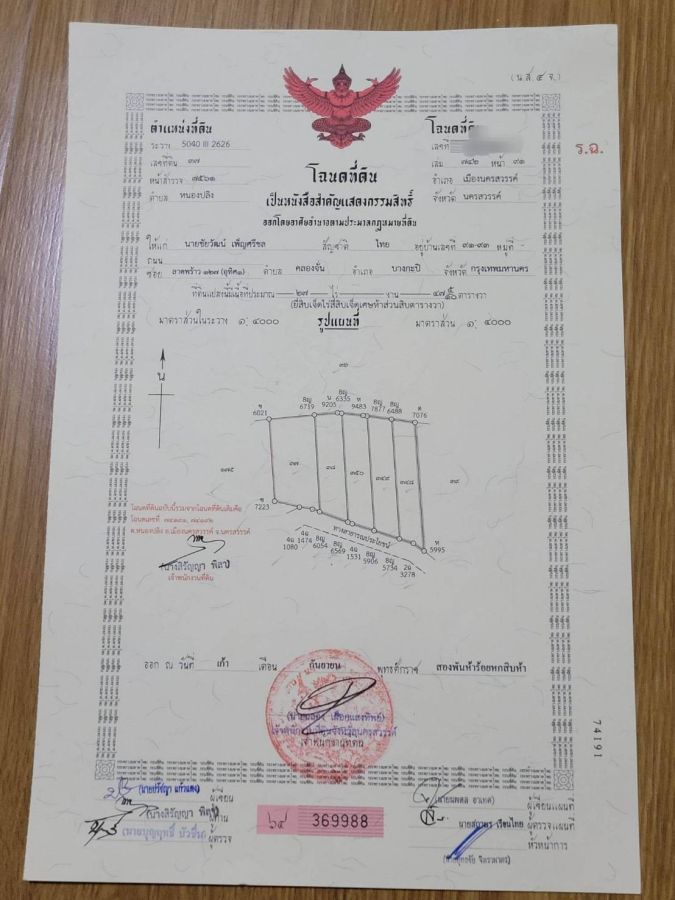 (น.ส.๔ จ.)
ตำแหน่งที่ดิน
ระวาง 5040 III 2626
เลขที่ดิน ๓๗
หน้าสำรวจ ๗๕๖๑
ตำบล หนองปลิง
โฉนดที่ดิน
เลขที่
เล่ม ๗๔๒ หน้า ๙๑
อำเภอ เมืองนครสวรรค์
จังหวัด นครสวรรค์
ร.ฉ.
โฉนดที่ดิน
เป็นหนังสือสำคัญแสดงกรรมสิทธิ์
ออกโดยอาศัยอำนาจตามประมวลกฎหมายที่ดิน
ให้แก่ นายชัยวัฒน์ เพ็ญศรีชล สัญชาติ ไทย อยู่บ้านเลขที่ ๙๑-๙๓ หมู่ที่ -
ถนน
ซอย ลาดพร้าว ๑๒๗ ตำบล คลองจั่น อำเภอ บางกะปิ จังหวัด กรุงเทพมหานคร
ที่ดินแปลงนี้มีเนื้อที่ประมาณ ๒๗ ไร่ งาน ๔๗ ตารางวา
(ยี่สิบเจ็ดไร่สี่สิบเจ็ดเศษห้าส่วนสิบตารางวา)
มาตราส่วนในระวาง ๑: ๔๐๐๐ รูปแผนที่ มาตราส่วน ๑: ๔๐๐๐
น
๓๖
ช 6021
ธญ 6759
น 9205
ธญ 6335
ห 9483
ธญ 7877
ธญ 6488
ต 7076
๑๗๕
๓๗
๓๘
๓๕๐
๓๔๙
๓๔๘
๓๙
ช 7223
4ฉ 1080
4ฉ 1474
ธญ 6054
ธญ 6569
4ฉ 1531
ธญ 5906
ธญ 5734
2ฉ 3278
ห 5995
ทางสาธารณประโยชน์
โฉนดที่ดินฉบับนี้รวมจากโฉนดที่ดินเดิมคือ
โฉนดเลขที่
ต.หนองปลิง อ.เมืองนครสวรรค์ จ.นครสวรรค์
(นางสิรัญญา พิลา)
เจ้าพนักงานที่ดิน
ออก ณ วันที่ เก้า เดือน กันยายน พุทธศักราช สองพันห้าร้อยหกสิบห้า
เจ้าพนักงานที่ดินจังหวัดนครสวรรค์
เจ้าพนักงานที่ดิน
74191
(นายปรัชญา แก้วแดง) ผู้เขียน
(นางสิรัญญา พิลา) ผู้ทาน
ผู้ตรวจ
๖๔ 369988
ผู้เขียนแผนที่
นายสถาพร เรือนไทย ผู้ตรวจแผนที่
หัวหน้าการ